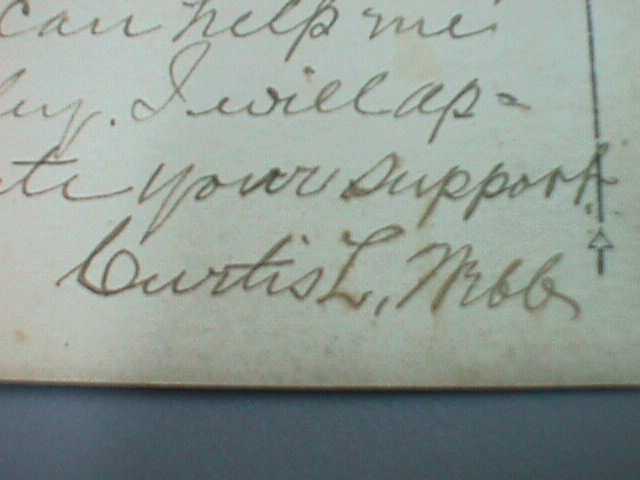 can help me
ley. I will ap=
te your support.
Curtis L. Webb